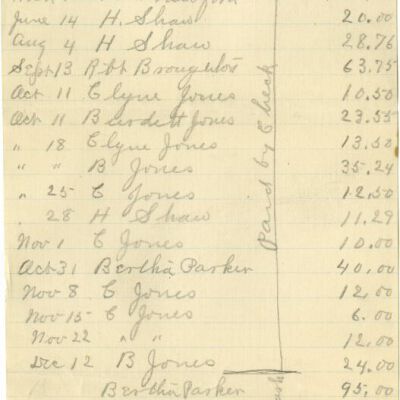 June 14 H. Shaw 20.00
Aug 4 H Shaw 28.76
Sept 13 Robt Broughton 63.75
Oct 11 Clyne Jones 10.50
Oct 11 Burdett Jones 23.55
" 18 Clyne Jones 13.50
" " B Jones 35.24
" 25 C Jones 12.50
" 28 H Shaw 11.29
Nov 1 C Jones 10.00
Oct 31 Bertha Parker 40.00
Nov 8 C Jones 12.00
Nov 15 C Jones 6.00
Nov 22 " " 12.00
Dec 12 B Jones 24.00
Bertha Parker 95.00
Paid by Check